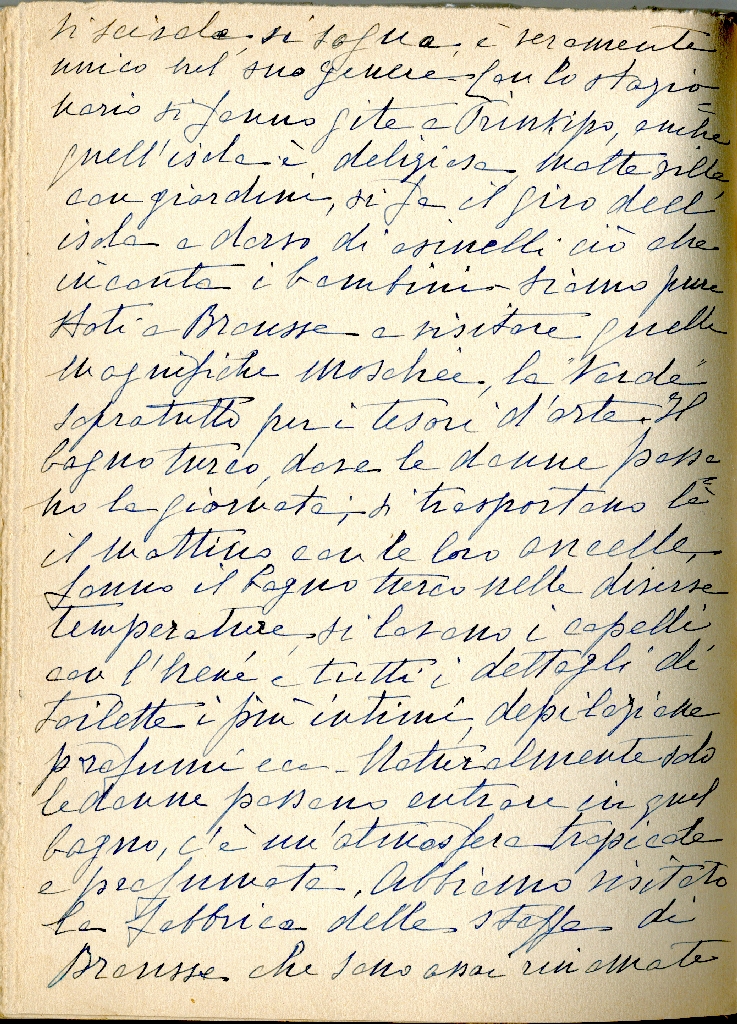 si scivola, si sogna, è veramente
unico nel suo genere. Con lo stazio=
nario si fanno gite a Prinkipo, anche
quell'isola è deliziosa, molte ville
con giardini, si fa il giro dell'
isola a dorso di asinelli ciò che
incanta i bambini - Siamo pure
stati a Brousse a visitare quelle
magnifiche moschee, la "Verde"
sopratutto per i tesori d'arte. Il
bagno turco, dove le donne passa=
no la giornata; si trasportano là
il mattino con le loro ancelle,
fanno il bagno turco nelle diverse
temperature, si lavano i capelli
con l'henné e tutti i dettagli di
toilette i più intimi, depilazione
profumi ecc - Naturalmente solo
le donne possono entrare in quel
bagno, c'è un'atmosfera tropicale
e profumata. Abbiamo visitato
la fabbrica delle stoffe di
Brousse che sono assai rinomate